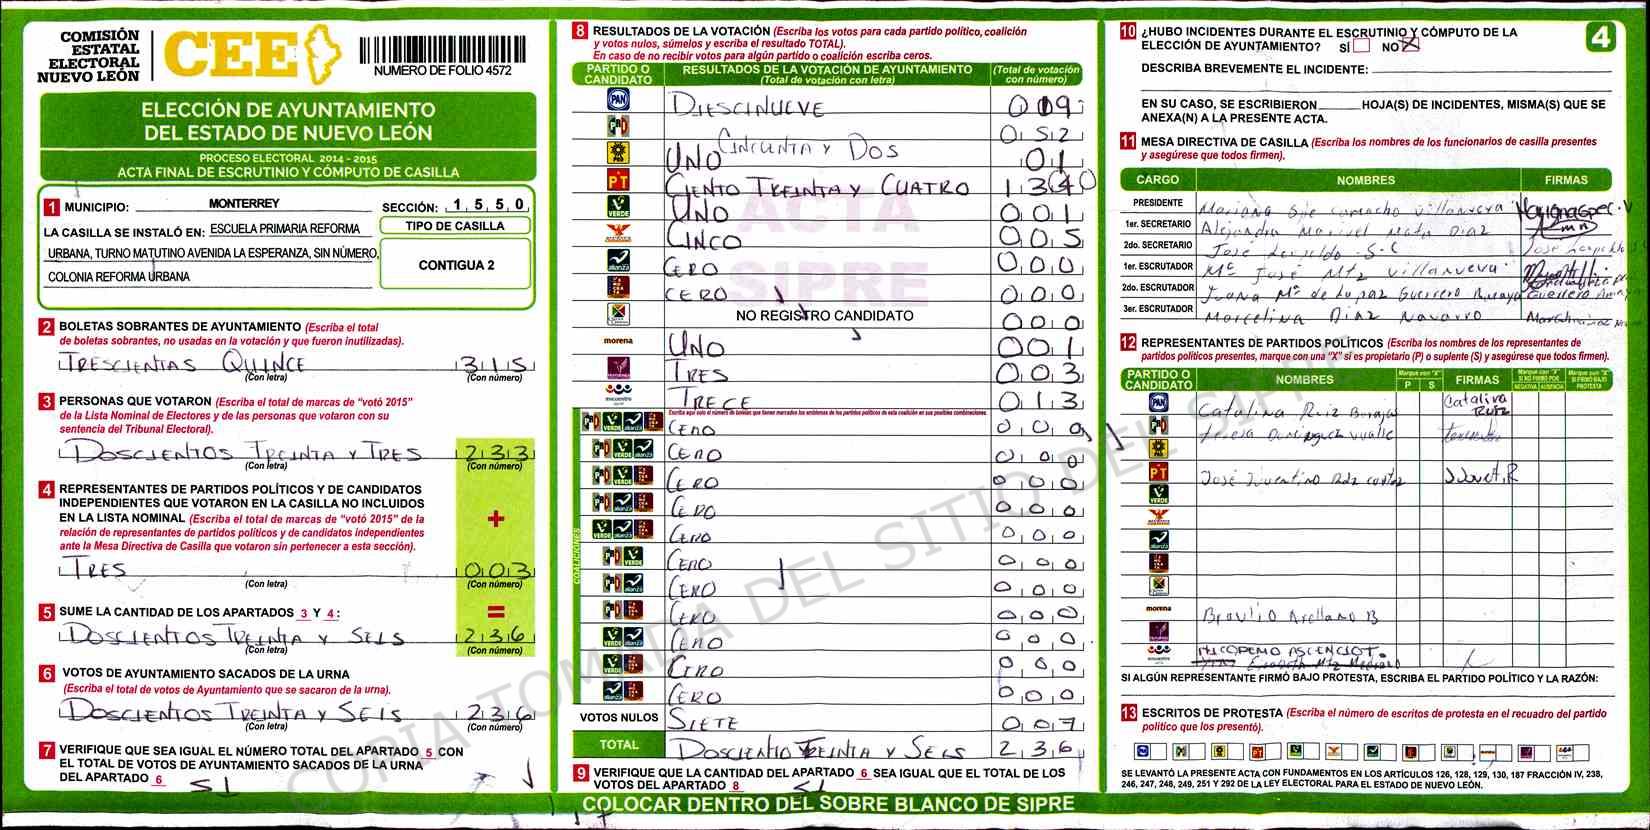 COMISIÓN
ESTATAL
ELECTORAL
NUEVO LEÓN
CEE
NUMERO DE FOLIO 4572
ELECCIÓN DE AYUNTAMIENTO
DEL ESTADO DE NUEVO LEÓN
PROCESO ELECTORAL 2014 - 2015
ACTA FINAL DE ESCRUTINIO Y CÓMPUTO DE CASILLA
1 MUNICIPIO: MONTERREY SECCIÓN: 1 5 5 0
LA CASILLA SE INSTALÓ EN: ESCUELA PRIMARIA REFORMA
URBANA, TURNO MATUTINO AVENIDA LA ESPERANZA, SIN NÚMERO,
COLONIA REFORMA URBANA
TIPO DE CASILLA
CONTIGUA 2
2 BOLETAS SOBRANTES DE AYUNTAMIENTO (Escriba el total
de boletas sobrantes, no usadas en la votación y que fueron inutilizadas).
TRESCIENTAS QUINCE 315
(Con letra) (Con número)
3 PERSONAS QUE VOTARON (Escriba el total de marcas de "votó 2015"
de la Lista Nominal de Electores y de las personas que votaron con su
sentencia del Tribunal Electoral).
DOSCIENTOS TREINTA Y TRES 233
(Con letra) (Con número)
4 REPRESENTANTES DE PARTIDOS POLÍTICOS Y DE CANDIDATOS
INDEPENDIENTES QUE VOTARON EN LA CASILLA NO INCLUIDOS
EN LA LISTA NOMINAL (Escriba el total de marcas de "votó 2015" de la
relación de representantes de partidos políticos y de candidatos independientes
ante la Mesa Directiva de Casilla que votaron sin pertenecer a esta sección).
+
TRES 003
(Con letra) (Con número)
5 SUME LA CANTIDAD DE LOS APARTADOS 3 Y 4: =
DOSCIENTOS TREINTA Y SEIS 236
(Con letra) (Con número)
6 VOTOS DE AYUNTAMIENTO SACADOS DE LA URNA
(Escriba el total de votos de Ayuntamiento que se sacaron de la urna).
DOSCIENTOS TREINTA Y SEIS 236
(Con letra) (Con número)
7 VERIFIQUE QUE SEA IGUAL EL NÚMERO TOTAL DEL APARTADO 5 CON
EL TOTAL DE VOTOS DE AYUNTAMIENTO SACADOS DE LA URNA
DEL APARTADO 6 SI
8 RESULTADOS DE LA VOTACIÓN (Escriba los votos para cada partido político, coalición
y votos nulos, súmelos y escriba el resultado TOTAL).
En caso de no recibir votos para algún partido o coalición escriba ceros.
PARTIDO O CANDIDATO RESULTADOS DE LA VOTACIÓN DE AYUNTAMIENTO (Total de votación con letra) (Total de votación con número)
PAN DIESCINUEVE 019
PRD CINCUENTA Y DOS 052
UNO 01
PT CIENTO TREINTA Y CUATRO 134
VERDE UNO 001
CINCO 005
alianza CERO 000
CERO 000
NO REGISTRO CANDIDATO 000
morena UNO 001
TRES 003
encuentro TRECE 013
Escriba aquí solo el número de boletas que tienen marcados los emblemas de los partidos políticos de esta coalición en sus posibles combinaciones.
COALICIONES
CERO 000
CERO 000
CERO 000
CERO 000
CERO 000
CERO 000
CERO 000
CERO 000
CERO 000
CERO 000
CERO 000
VOTOS NULOS SIETE 007
TOTAL DOSCIENTO TREINTA Y SEIS 236
9 VERIFIQUE QUE LA CANTIDAD DEL APARTADO 6 SEA IGUAL QUE EL TOTAL DE LOS
VOTOS DEL APARTADO 8 SI
COLOCAR DENTRO DEL SOBRE BLANCO DE SIPRE
ACTA
SIPRE
COPIA TOMADA DEL SITIO DEL SIPRE
4
10 ¿HUBO INCIDENTES DURANTE EL ESCRUTINIO Y CÓMPUTO DE LA
ELECCIÓN DE AYUNTAMIENTO? SÍ NO X
DESCRIBA BREVEMENTE EL INCIDENTE:
EN SU CASO, SE ESCRIBIERON HOJA(S) DE INCIDENTES, MISMA(S) QUE SE
ANEXA(N) A LA PRESENTE ACTA.
11 MESA DIRECTIVA DE CASILLA (Escriba los nombres de los funcionarios de casilla presentes
y asegúrese que todos firmen).
CARGO NOMBRES FIRMAS
PRESIDENTE Mariana Camacho Villanueva
1er. SECRETARIO Alejandra Marivel Mata Diaz
2do. SECRETARIO José Leopoldo S.C
1er. ESCRUTADOR Mª José Mtz Villanueva
2do. ESCRUTADOR Juana Mª de la paz Guerrero
3er. ESCRUTADOR Marcelina Diaz Navarro
12 REPRESENTANTES DE PARTIDOS POLÍTICOS (Escriba los nombres de los representantes de
partidos políticos presentes, marque con una "X" si es propietario (P) o suplente (S) y asegúrese que todos firmen).
PARTIDO O CANDIDATO NOMBRES Marque con "X" P S FIRMAS Marque con "X" SI NO FIRMÓ POR NEGATIVA AUSENCIA Marque con "X" SI FIRMÓ BAJO PROTESTA
PAN Catalina Ruiz Catalina Ruiz
PRD Teresa Dominguez
PT José Juventino
VERDE
morena Braulio Arellano B
NICODEMO ASCENCIO T.
SI ALGÚN REPRESENTANTE FIRMÓ BAJO PROTESTA, ESCRIBA EL PARTIDO POLÍTICO Y LA RAZÓN:
13 ESCRITOS DE PROTESTA (Escriba el número de escritos de protesta en el recuadro del partido
político que los presentó).
SE LEVANTÓ LA PRESENTE ACTA CON FUNDAMENTOS EN LOS ARTÍCULOS 126, 128, 129, 130, 187 FRACCIÓN IV, 238,
246, 247, 248, 249, 251 Y 292 DE LA LEY ELECTORAL PARA EL ESTADO DE NUEVO LEÓN.